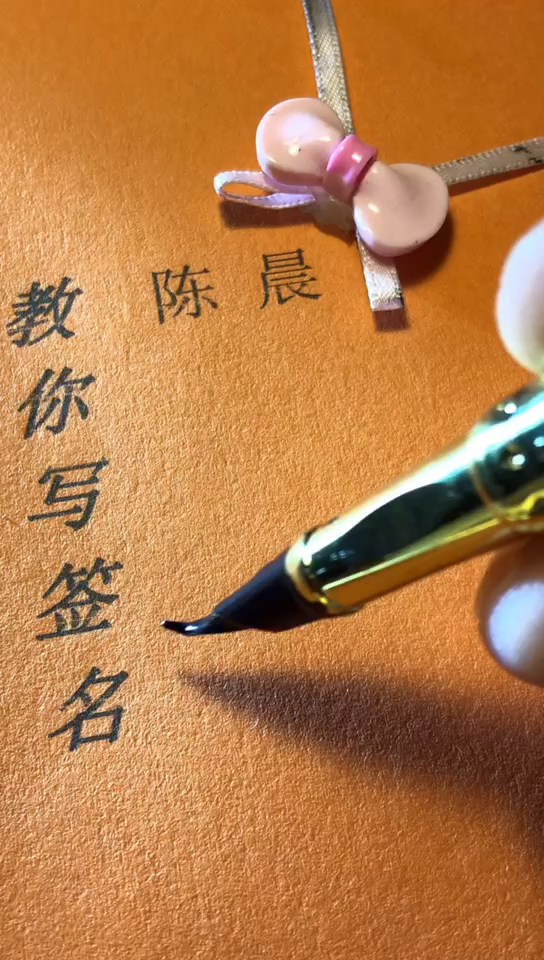 陈晨
教你写签名